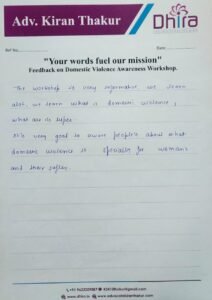 Adv. Kiran Thakur
Dhira
Ref No.
Date
"Your words fuel our mission"
Feedback on Domestic Violence Awareness Workshop.
The workshop is very informative we learn
alot. we learn what is domestic violence,
what are its types.
It's very good to aware people's about what
domestic violence is specially for womans
and their safety.
www.dhira.in
www.advocatekiranthakur.com